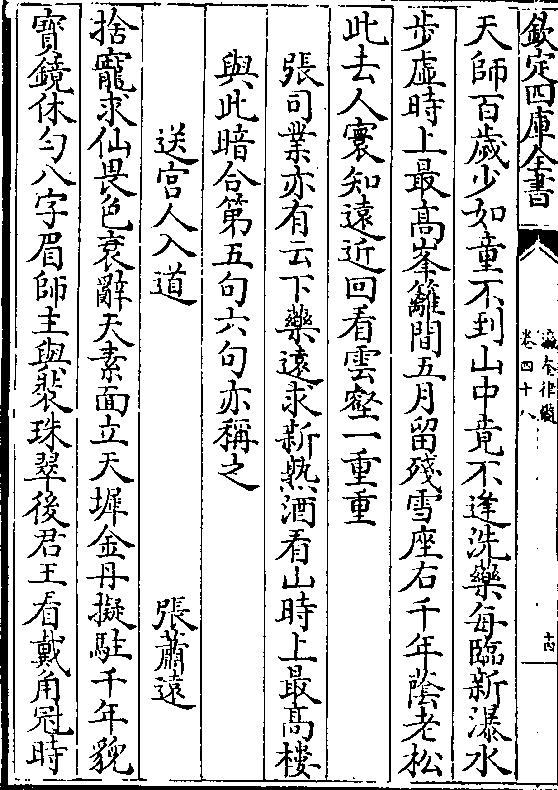 欽定四庫全書
瀛奎律髓
卷四十八
十四
天師百歲少如童不到山中竟不逢洗藥每臨新瀑水
步虛時上最高峯籬間五月留殘雪座右千年蔭老松
此去人寰知遠近回看雲壑一重重
張司業亦有云下藥遠求新熟酒看山時上最高樓
與此暗合第五句六句亦稱之
送宮人入道
張蕭遠
捨寵求仙畏色衰辭天素面立天墀金丹擬駐千年貌
寶鏡休勻八字眉師主與裝珠翠後君王看戴角冠時